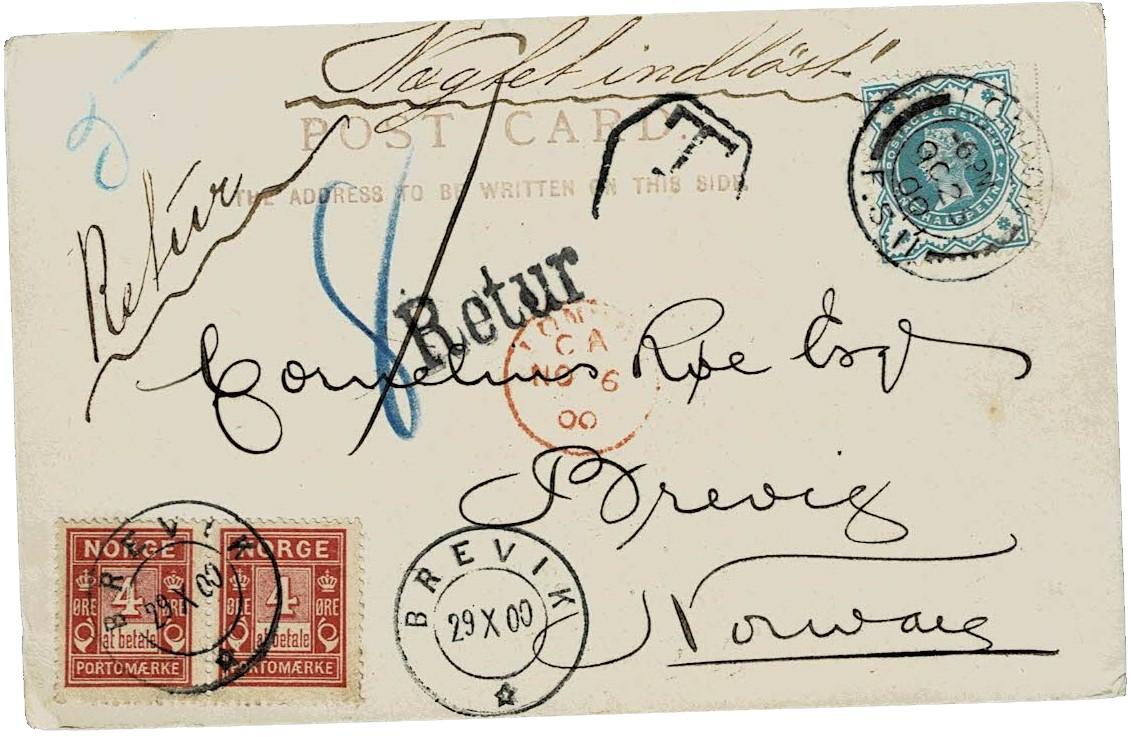 "Nægtet indløst"
POST CARD.
THE ADDRESS TO BE WRITTEN ON THIS SIDE.
T
POSTAGE & REVENUE
HALF PENNY
F.S.
OC 2
00
5
Retur
8
Retur
LONDON
CA
NO 6
00
Cornelius Roe Esqr
Brevig
Norway
NORGE
4
ØRE ØRE
at betale
PORTOMÆRKE
NORGE
4
ØRE ØRE
at betale
PORTOMÆRKE
BREVIK
29 X 00
BREVIK
29 X 00